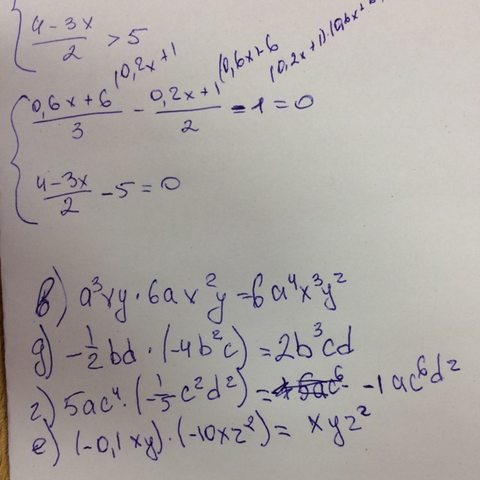 (4-3x)/2 > 5
(0,2x+1 (0,6x+6
(0,6x+6)/3 - (0,2x+1)/2 - 1 = 0
(4-3x)/2 - 5 = 0
в) a³xy · 6ax²y = 6a⁴x³y²
д) -1/2 bd · (-4b²c) = 2b³cd
г) 5ac⁴ · (-1/5 c²d²) = -1ac⁶d²
е) (-0,1xy) · (-10xz²) = xyz²